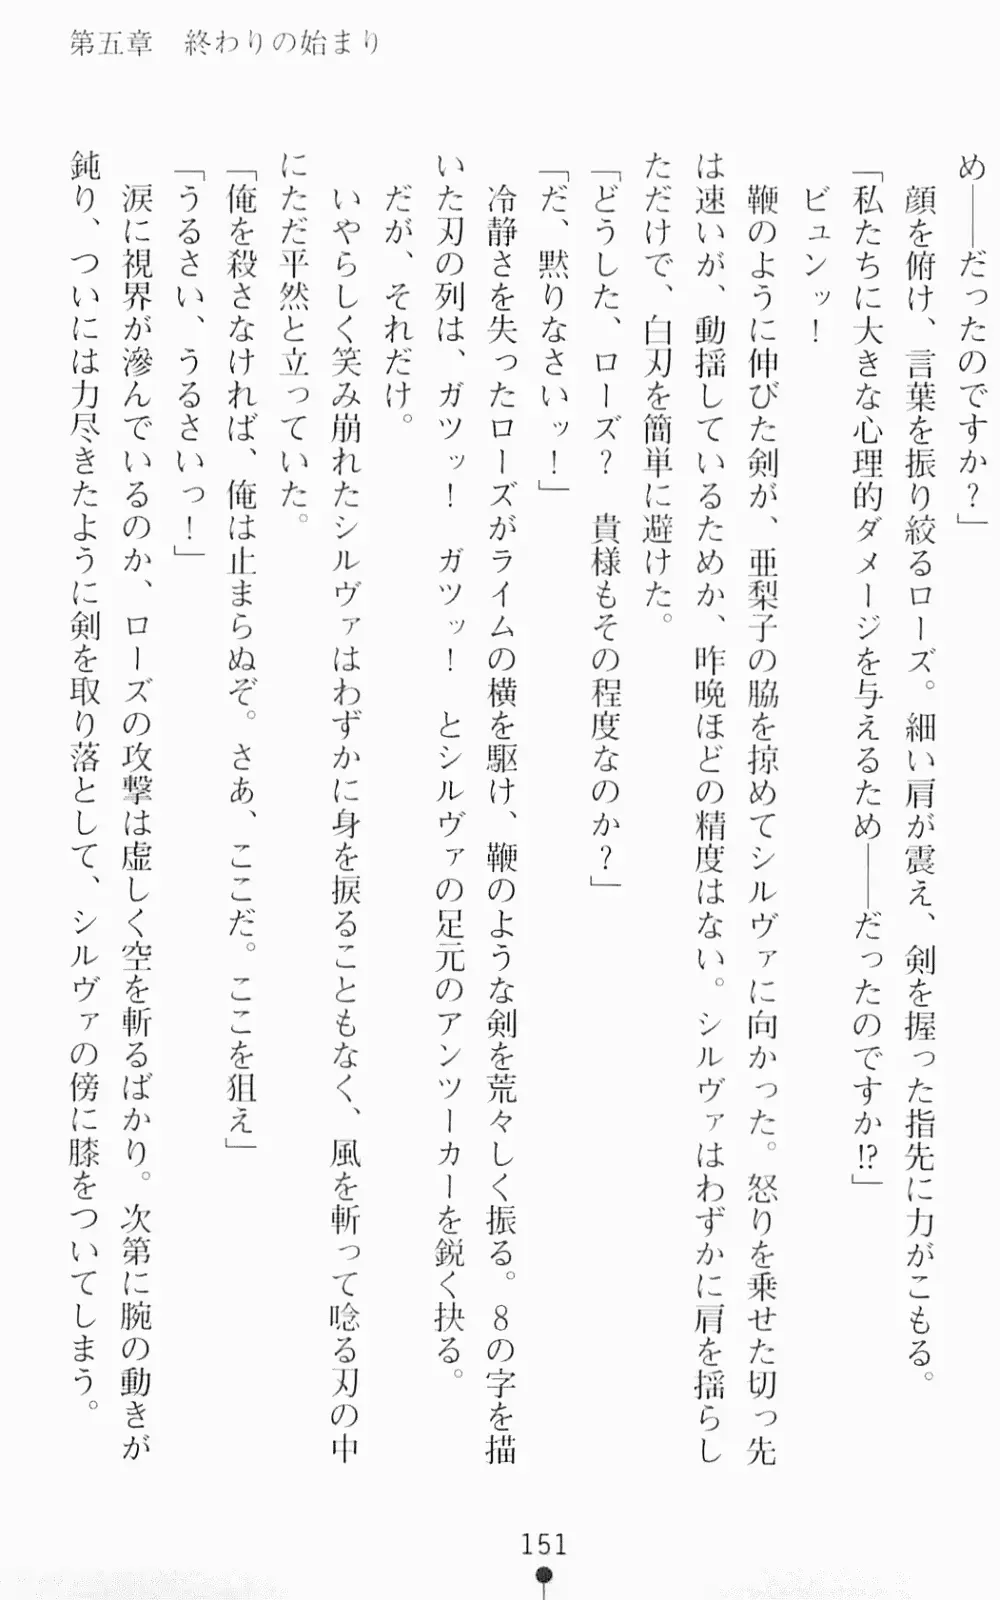 第五章　終わりの始まり
め――だったのですか？」
　顔を俯け、言葉を振り絞るローズ。細い肩が震え、剣を握った指先に力がこもる。
「私たちに大きな心理的ダメージを与えるため――だったのですか!?」
　ビュンッ！
　鞭のように伸びた剣が、亜梨子の脇を掠めてシルヴァに向かった。怒りを乗せた切っ先
は速いが、動揺しているためか、昨晩ほどの精度はない。シルヴァはわずかに肩を揺らし
ただけで、白刃を簡単に避けた。
「どうした、ローズ？　貴様もその程度なのか？」
「だ、黙りなさいッ！」
　冷静さを失ったローズがライムの横を駆け、鞭のような剣を荒々しく振る。８の字を描
いた刃の列は、ガツッ！　ガツッ！　とシルヴァの足元のアンツーカーを鋭く抉る。
　だが、それだけ。
　いやらしく笑み崩れたシルヴァはわずかに身を捩ることもなく、風を斬って唸る刃の中
にただ平然と立っていた。
「俺を殺さなければ、俺は止まらぬぞ。さあ、ここだ。ここを狙え」
「うるさい、うるさいっ！」
　涙に視界が滲んでいるのか、ローズの攻撃は虚しく空を斬るばかり。次第に腕の動きが
鈍り、ついには力尽きたように剣を取り落として、シルヴァの傍に膝をついてしまう。
151